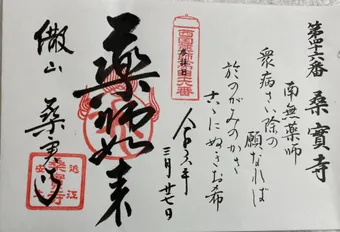 第四十六番 桑實寺
南無薬師
衆病さい除の
願なれば
於のがみのかさ
こゝにぬぎお希
西国薬師第四十六番
令和六年
三月廿七日
薬師如来
繖山
桑實寺
近江
桑實寺